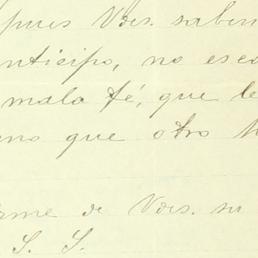 pues Vds. saben
anticipo, no esco
mala fé, que le
eno que otro h
rme de Vds. su
S. S.